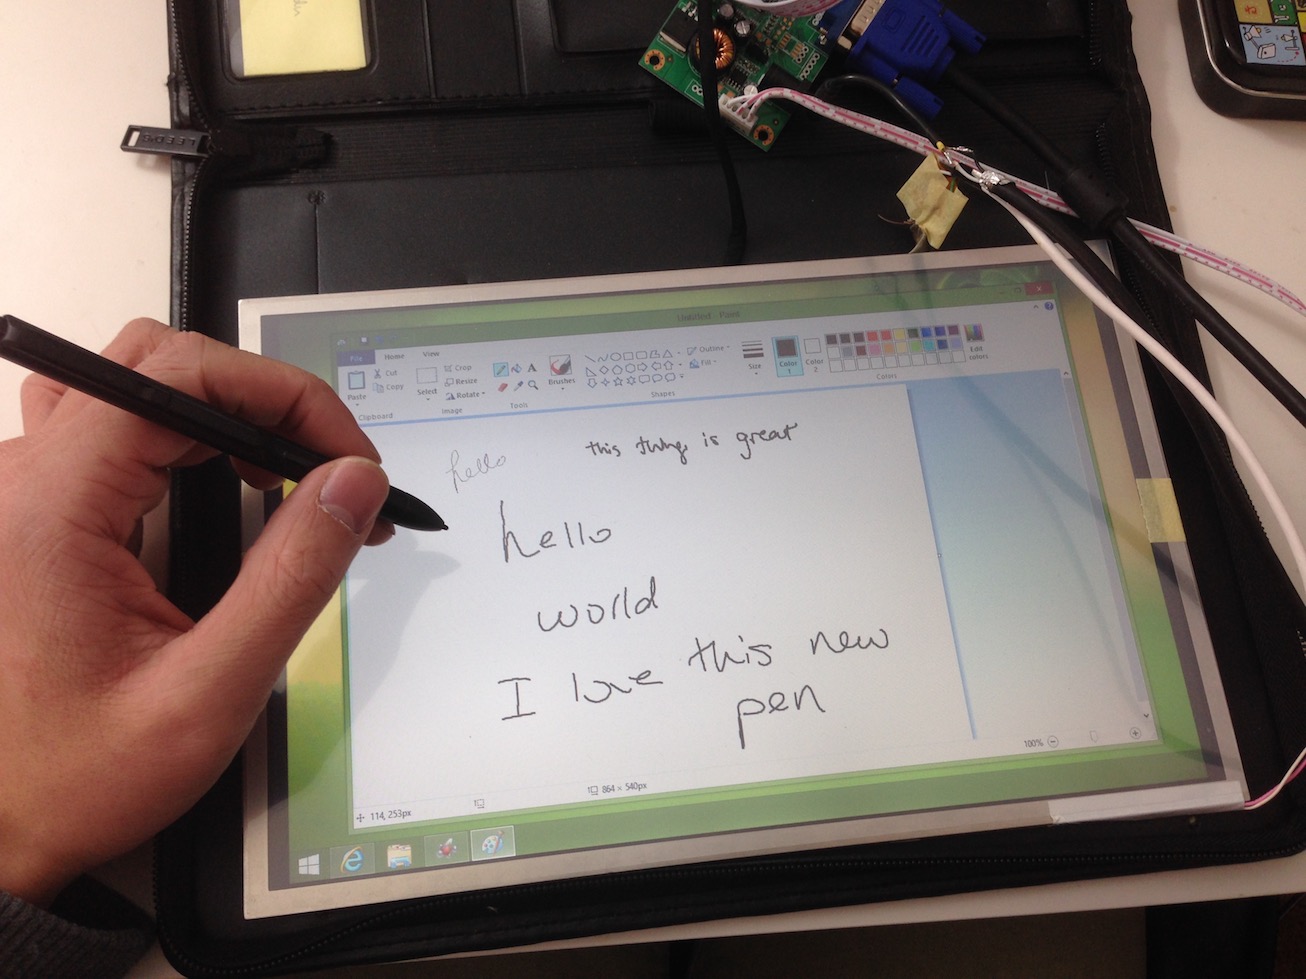 LEEDS
Untitled - Paint
File Home View
Paste
Cut
Copy
Clipboard
Select
Crop
Resize
Rotate
Image
A
Tools
Brushes
Outline
Fill
Shapes
Size
Color 1
Color 2
Edit colors
Colors
hello
this thing is great
hello
world
I love this new
pen
114, 253px
864 × 540px
100%